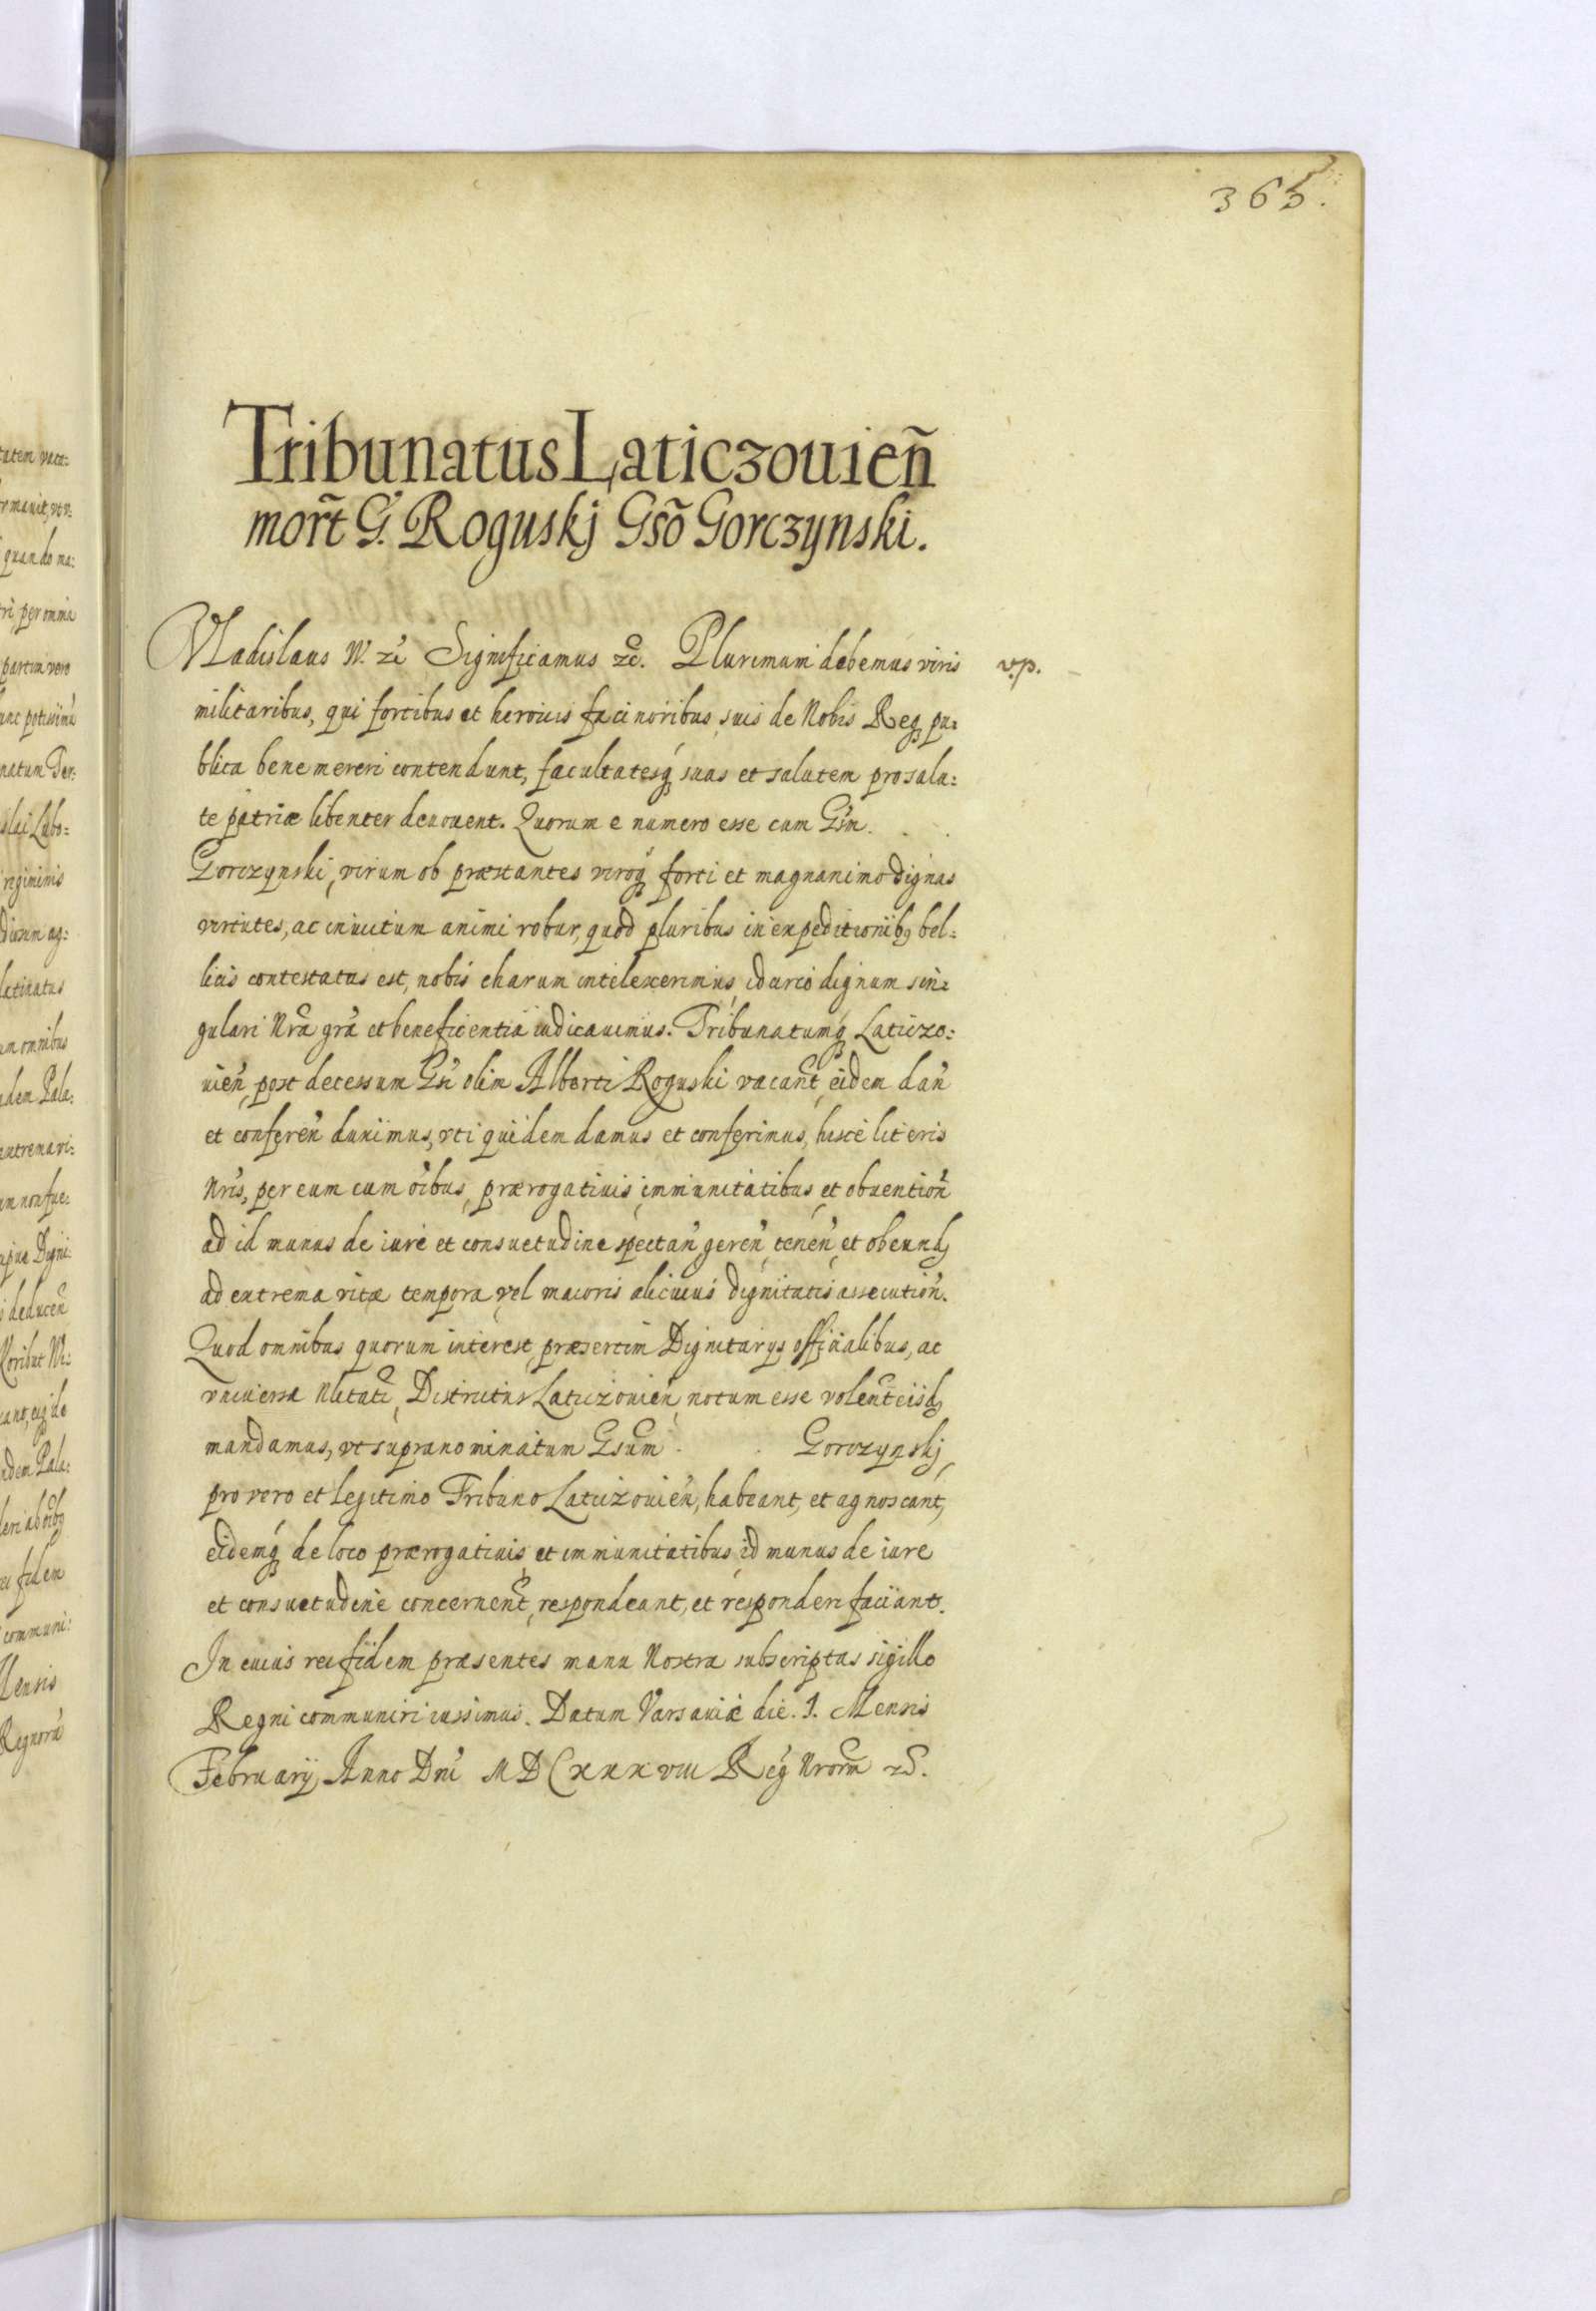 365.
Tribunatus Laticzouień
mort̃ G. Roguskj Gsõ Gorczynski.
Vladislaus IV. zc̃ Significamus zc̃. Plurimum debemus viris v.p.
militaribus, qui fortibus et heroicis facinoribus suis de Nobis Reqꝫ pu=
blica bene mereri contendunt, facultatesqꝫ suas et salutem pro salu=
te patriæ libenter deuouent. Quorum e numero esse cum Gsm̃
Gorczynski, virum ob præstantes viroqꝫ forti et magnanimo dignas
virtutes, ac inuictum animi robur, quod pluribus in expeditionibꝫ bel=
licis contestatus est, nobis charum intelexerimus, idcirco dignum sin=
gulari Nrã grã et beneficentia iudicauimus. Tribunatumqꝫ Laticzo=
uień, post decessum Gsi olim Alberti Roguski vacant̃, eidem dań
et conferen̄ duximus, vti quidem damus et conferimus, hisce literis
Nris̃, per eum cum oĩbus, prærogatiuis, immunitatibus, et obuention̄
ad id munus de iure et consuetudine spectan̄, geren̄, tenen̄, et obeundꝫ
ad extrema vitæ tempora, vel maioris alicuius dignitatis assecution̄.
Quod omnibus quorum interest, præsertim Dignitarijs officialibus, ac
vniuersæ Nlitati, Districtus Laticzouień, notum esse volent̃ eisdꝫ
mandamus, vt supranominatum Gsum̃ Gorczynskj,
pro vero et legitimo Tribuno Laticzouień, habeant, et agnoscant,
eidemqꝫ de loco prærogatiuis, et immunitatibus, id munus de iure
et consuetudine concernent̃, respondeant, et responderi faciant.
In cuius rei fidem præsentes manu Nostra subscriptas sigillo
Regni communiri iussimus. Datum Varsauiæ die. 1. Mensis
Februarij Anno Dni MDCxxxviii Regꝫ Nrorm̃ zc̃.